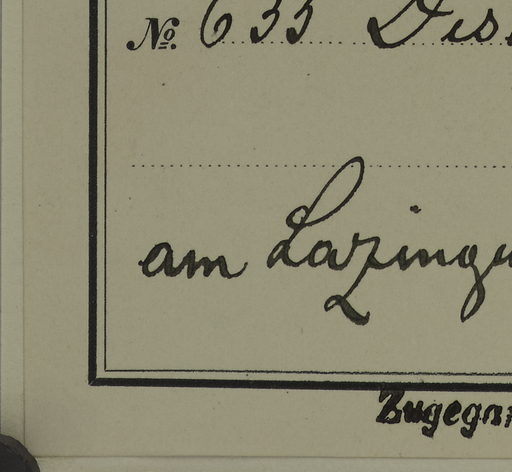 № 633 Des
am Lazingu
Zugegan